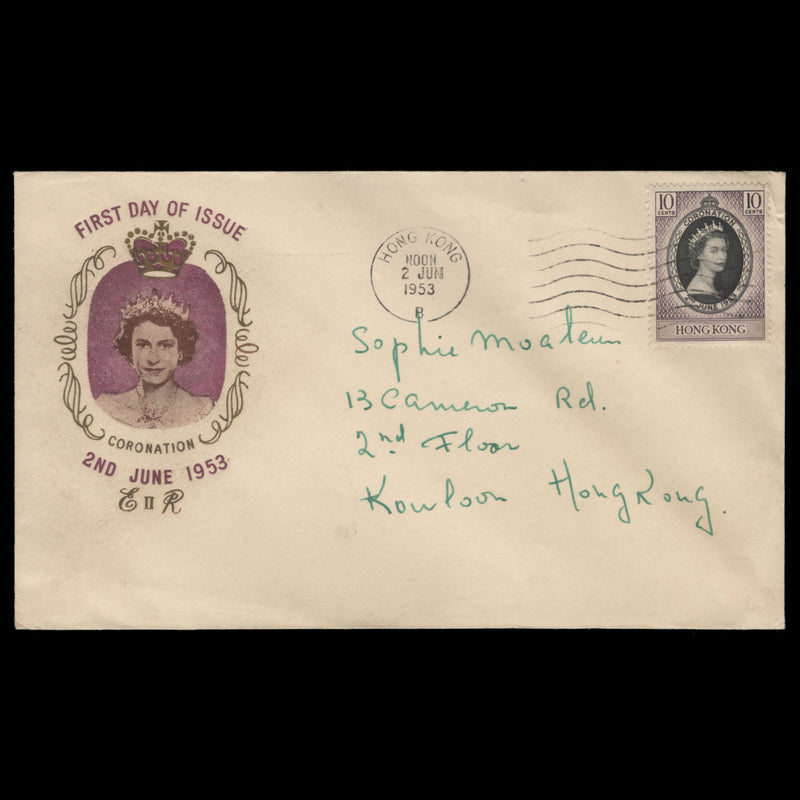 FIRST DAY OF ISSUE
CORONATION
2ND JUNE 1953
E II R
HONG KONG
NOON
2 JUN
1953
B
10 CENTS
10 CENTS
CORONATION
2 JUNE 1953
HONG KONG
Sophie
13 Cameron Rd.
2nd Floor
Kowloon Hong Kong.